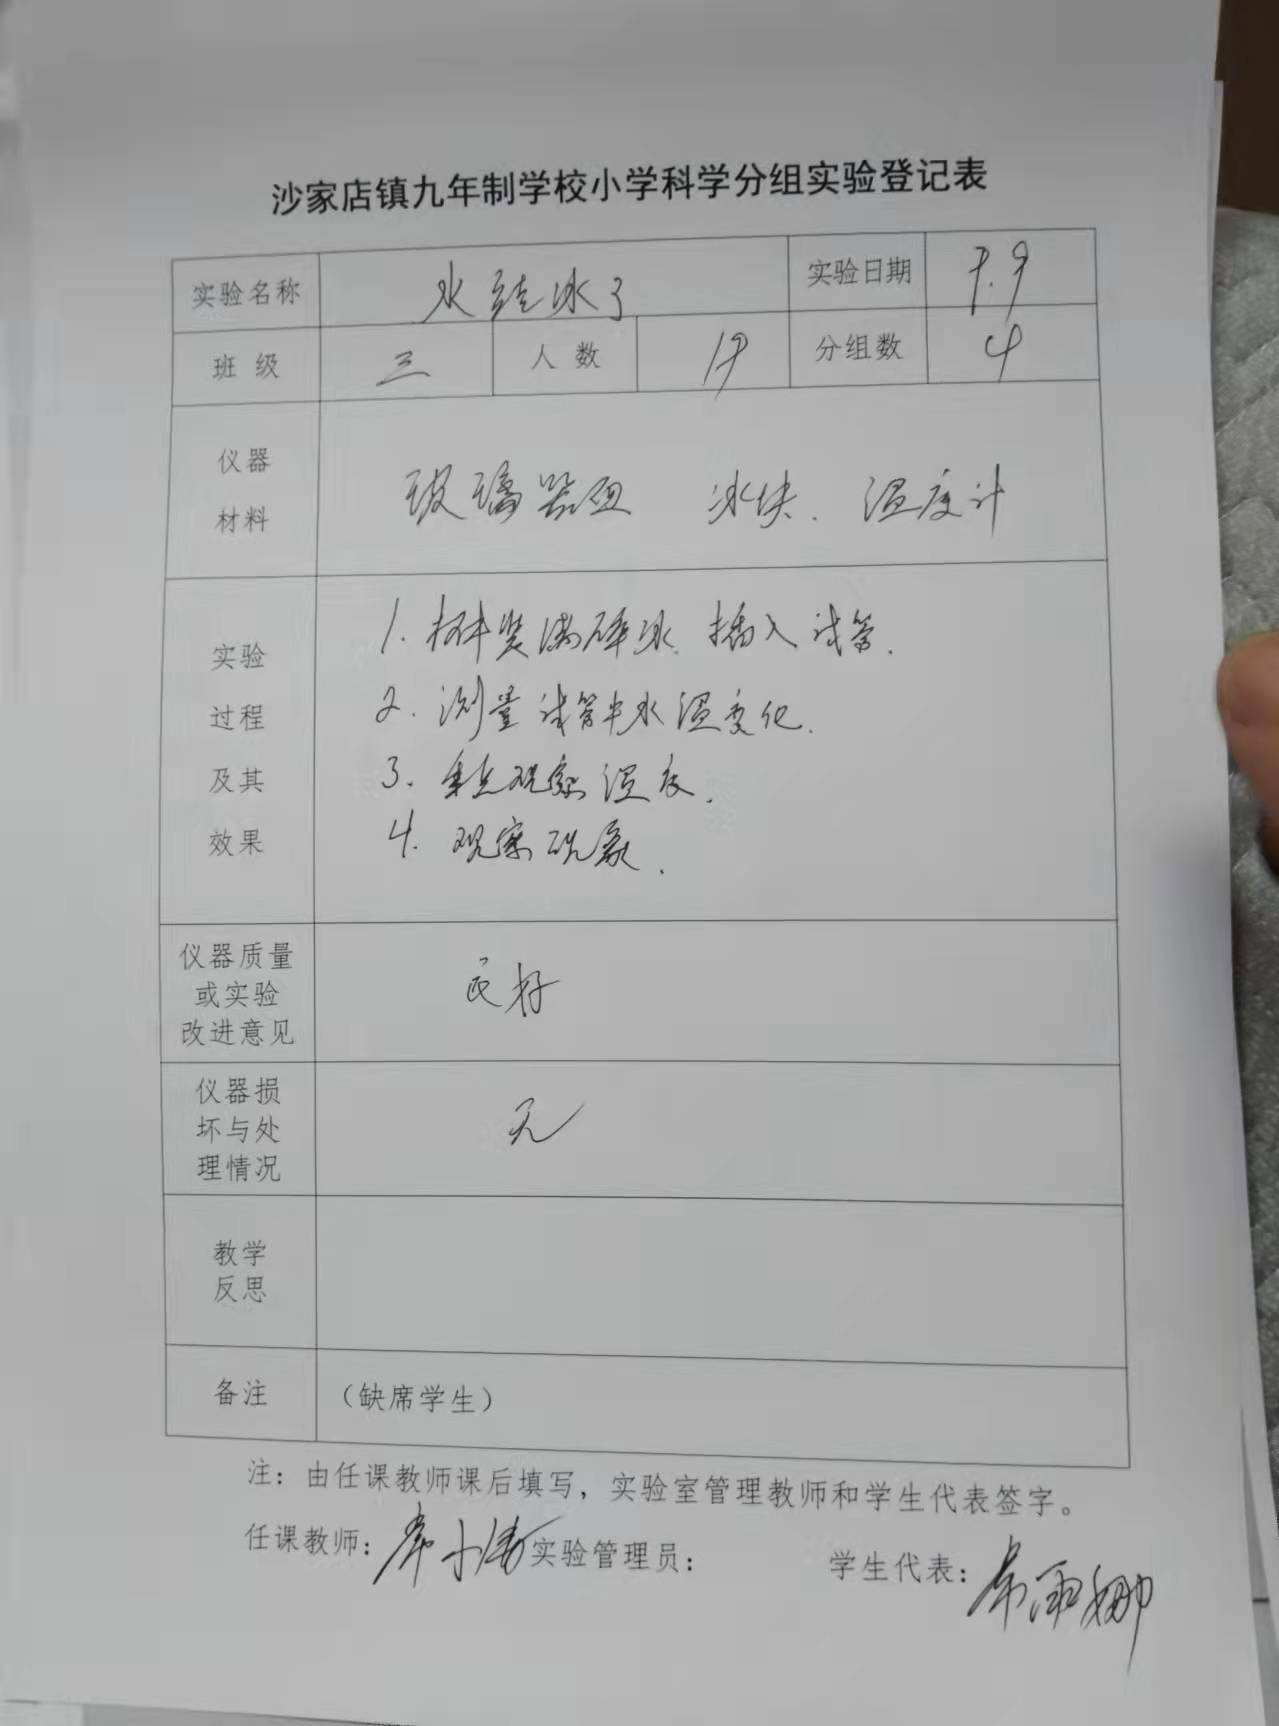 沙家店镇九年制学校小学科学分组实验登记表
实验名称 水结冰了 实验日期 9.9
班级 三 人数 19 分组数 4
仪器材料 玻璃器皿 冰块. 温度计
实验过程及其效果
1. 杯中装满碎冰. 插入试管.
2. 测量试管中水温变化.
3. 重点观察温度.
4. 观察现象.
仪器质量或实验改进意见 良好
仪器损坏与处理情况 无
教学反思
备注 （缺席学生）
注：由任课教师课后填写，实验室管理教师和学生代表签字。
任课教师： 实验管理员： 学生代表：